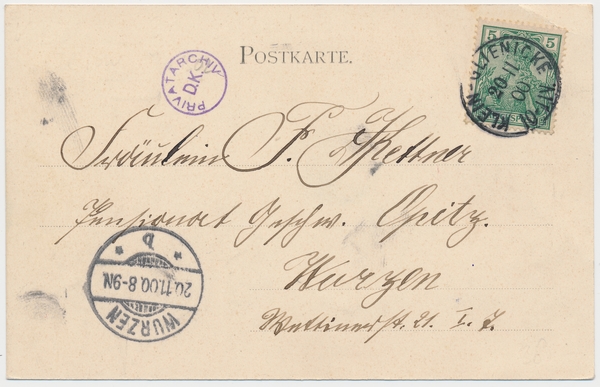 POSTKARTE.
PRIVATARCHIV
D.K.
5 5
KLEIN-GLIENICKE
20 11
00
Fräulein F. Kettner
Pensionat Geschw. Opitz.
Wurzen
Wettinerst. 21. I. 
WURZEN
20.11.00.8-9N.
b